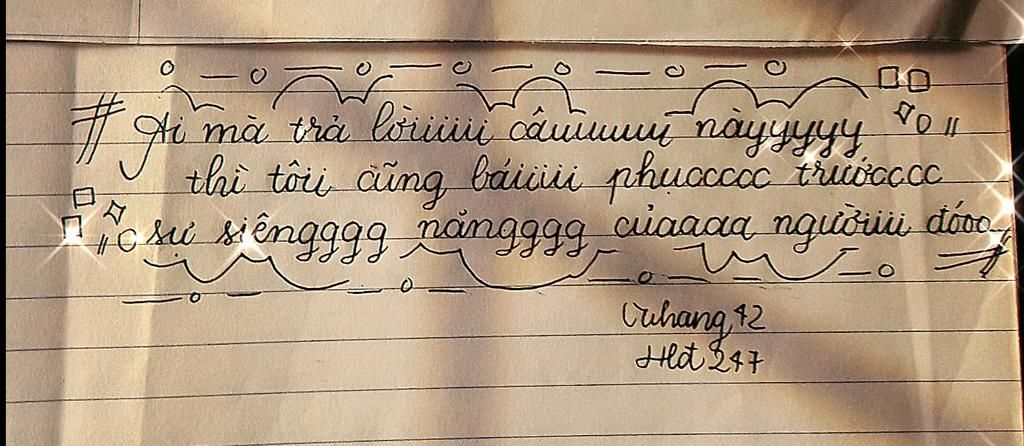 Ai mà trả lờiiiiii câuuuuuu nàyyyyy
thì tôii cũng báiiiii phụccccc trướcccc
sự siêngggg nănggggg củaaaa ngườiiii đóoo
Hđt 247